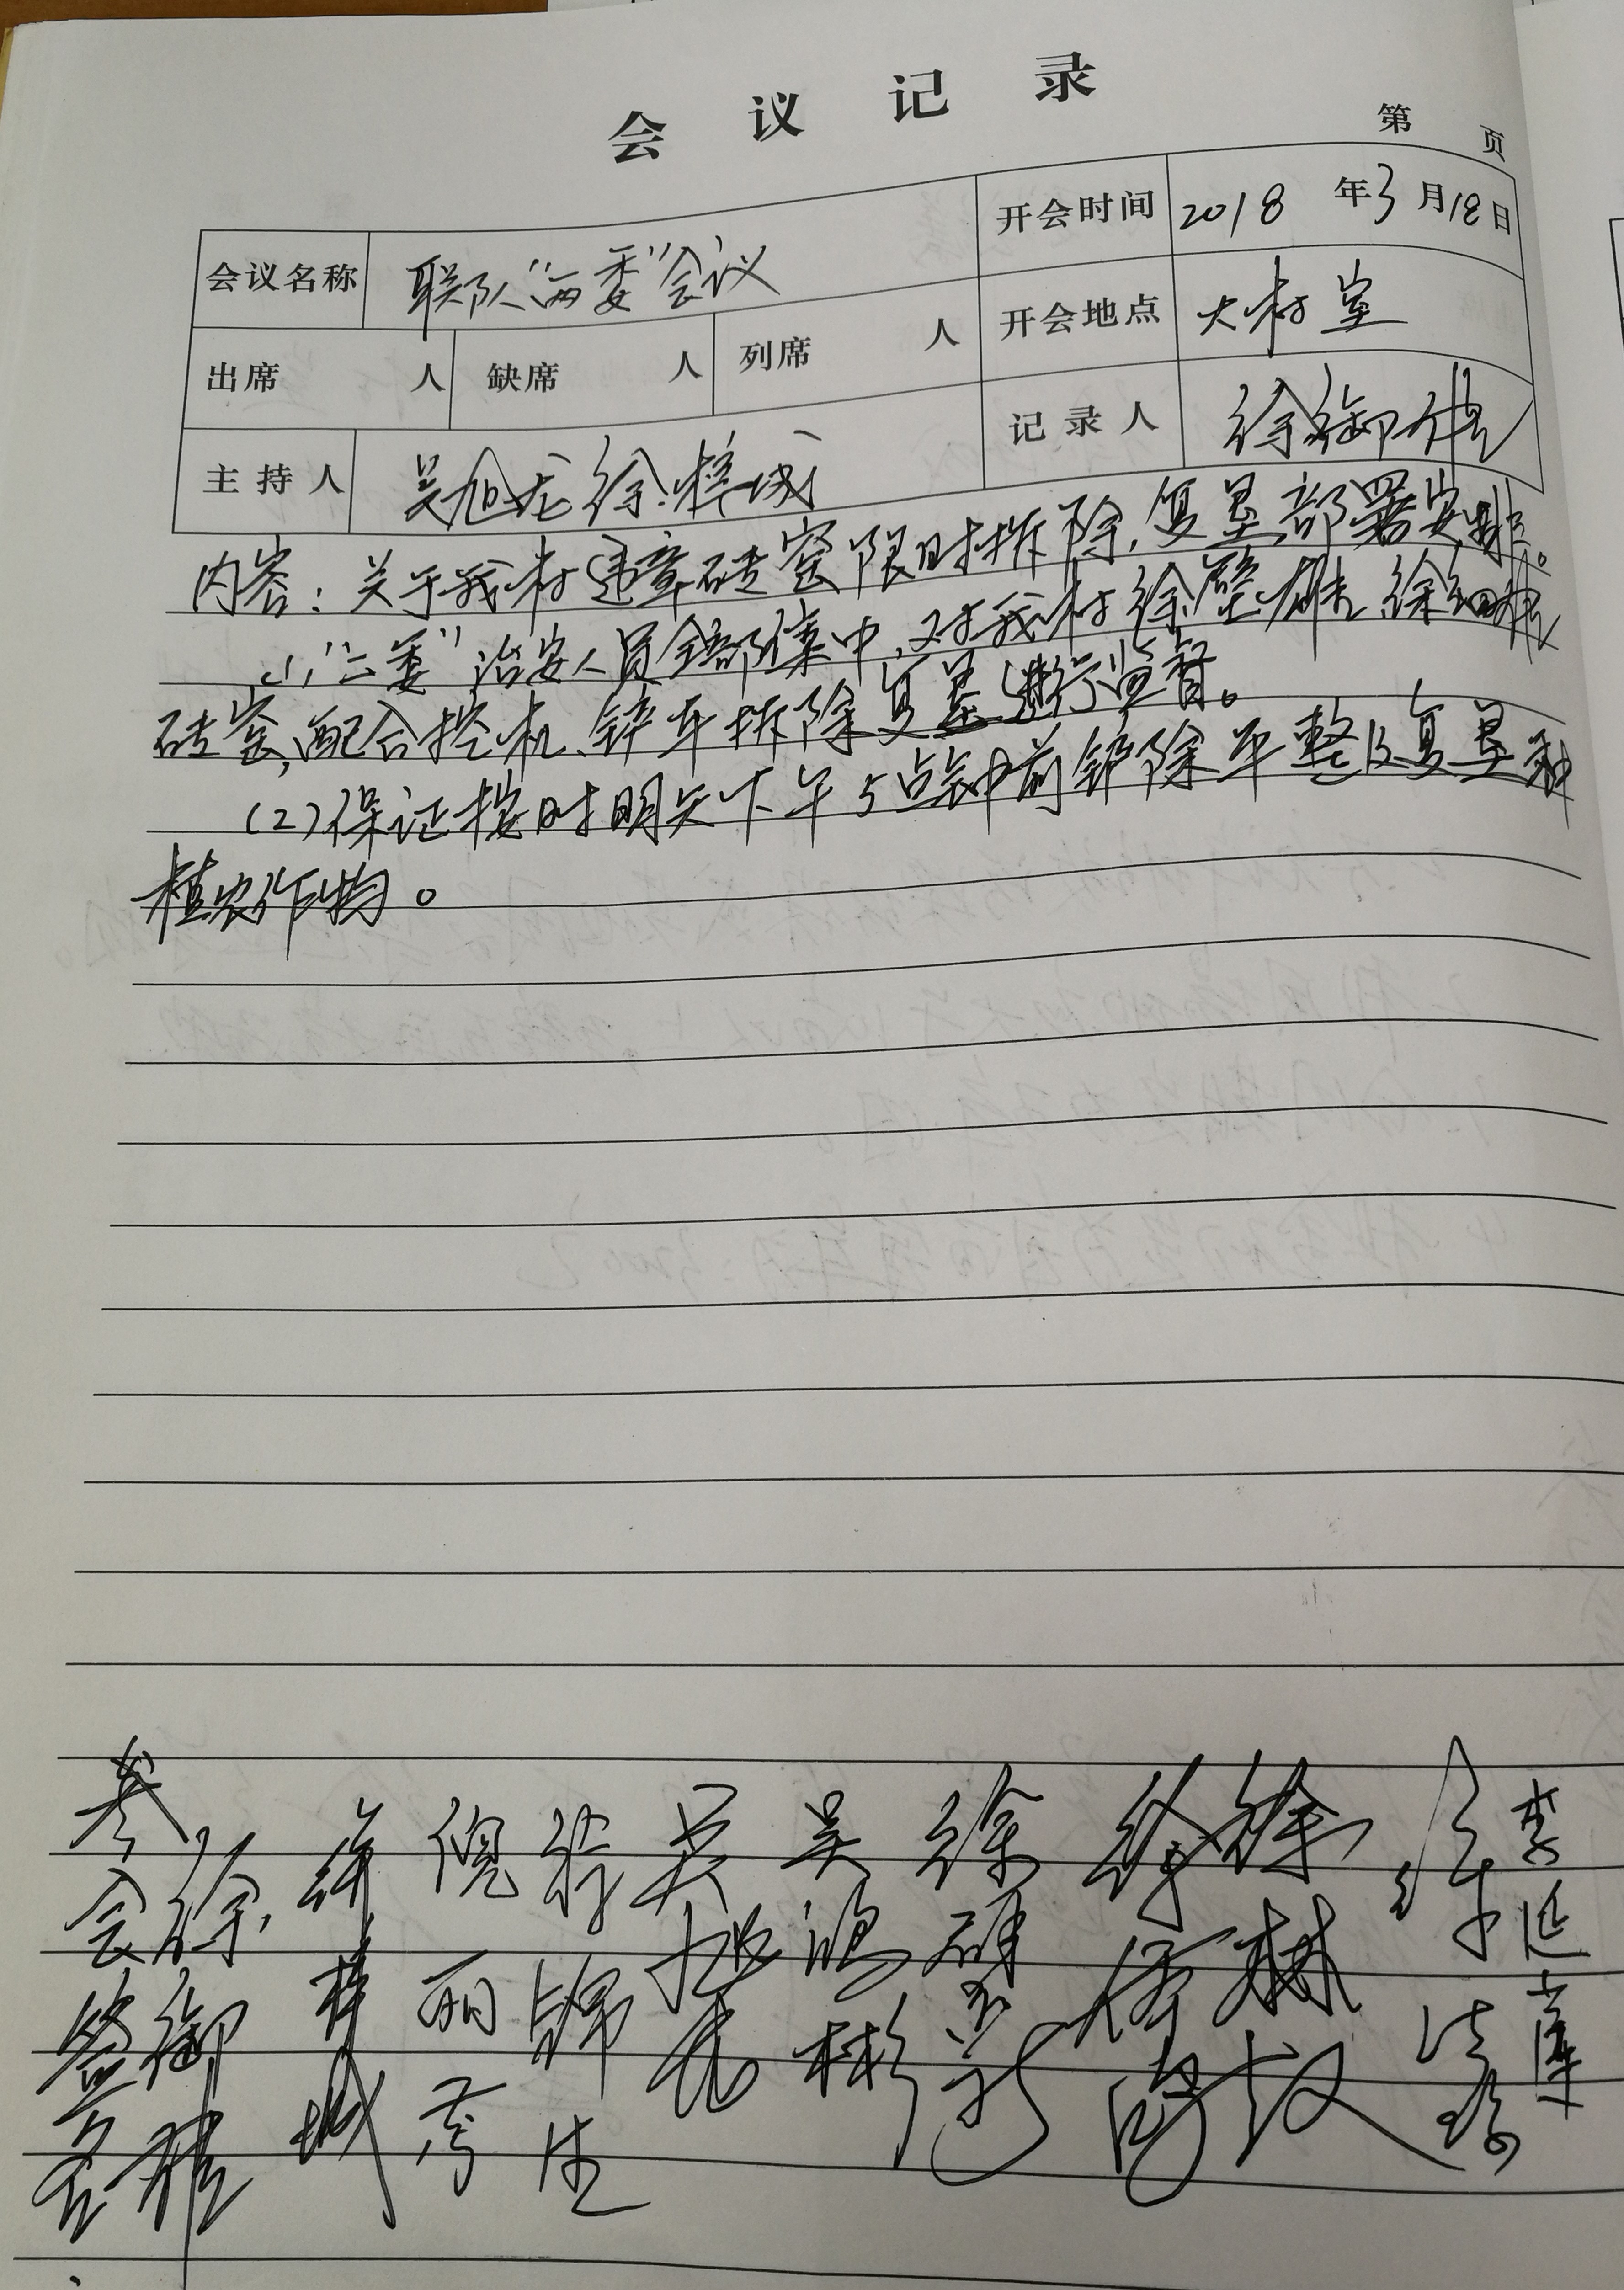 会议记录
第 页
会议名称 联队“两委”会议 开会时间 2018年3月18日
出席 人 缺席 人 列席 人 开会地点 大村室
主持人 吴旭龙 徐梓城 记录人 徐御
内容：关于我村违章砖窑限时拆除,复垦部署安排。
(1)“二委”治安人员全部集中,对我村徐壁雄 徐
砖窑,配合挖机、铲车拆除复垦进行监督。
(2)保证按时明天下午5点钟前铲除平整及复垦种
植农作物。
参会签名
徐御
徐梓城
倪丽芬
吴旭龙
吴鸿彬
李延莲